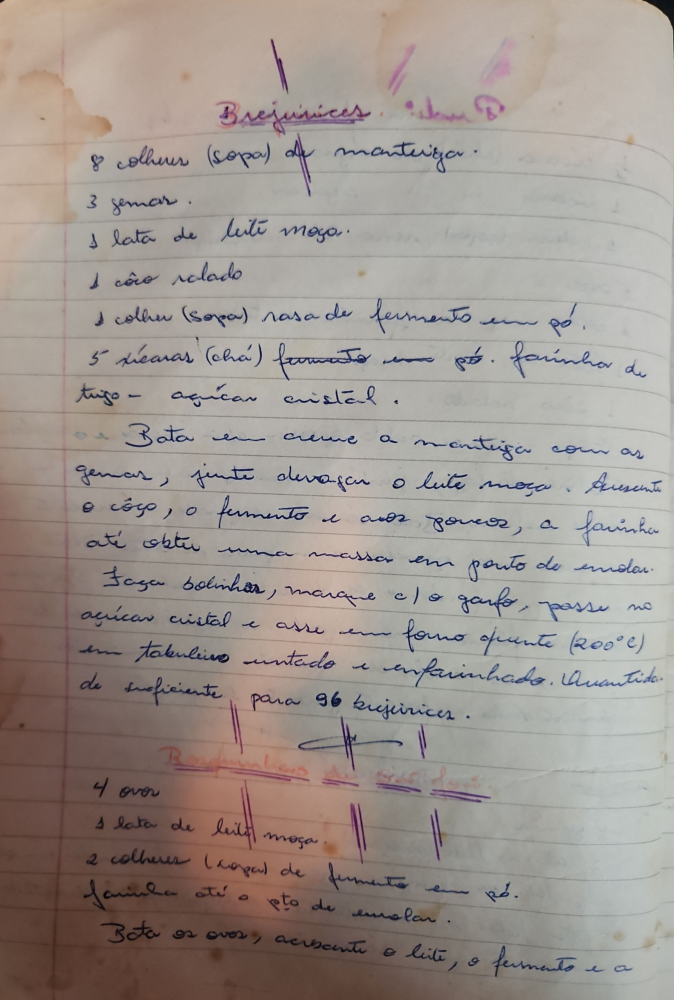 Brejeirices.
8 colheres (sopa) de manteiga.
3 gemas.
1 lata de leite moça.
1 côco ralado
1 colher (sopa) rasa de fermento em pó.
5 xícaras (chá) fermento em pó. farinha de
trigo - açúcar cristal.
Bata em creme a manteiga com as
gemas, junte devagar o leite moça. Acrescente
o côco, o fermento e aos poucos, a farinha
até obter uma massa em ponto de enrolar.
Faça bolinhas, marque c/ o garfo, passe no
açúcar cristal e asse em forno quente (200°C)
em tabuleiro untado e enfarinhado. Quantida-
de suficiente para 96 brejeirices.
4 ovos
1 lata de leite moça
2 colheres (sopa) de fermento em pó.
farinha até o pto de enrolar.
Bata os ovos, acrescente o leite, o fermento e a